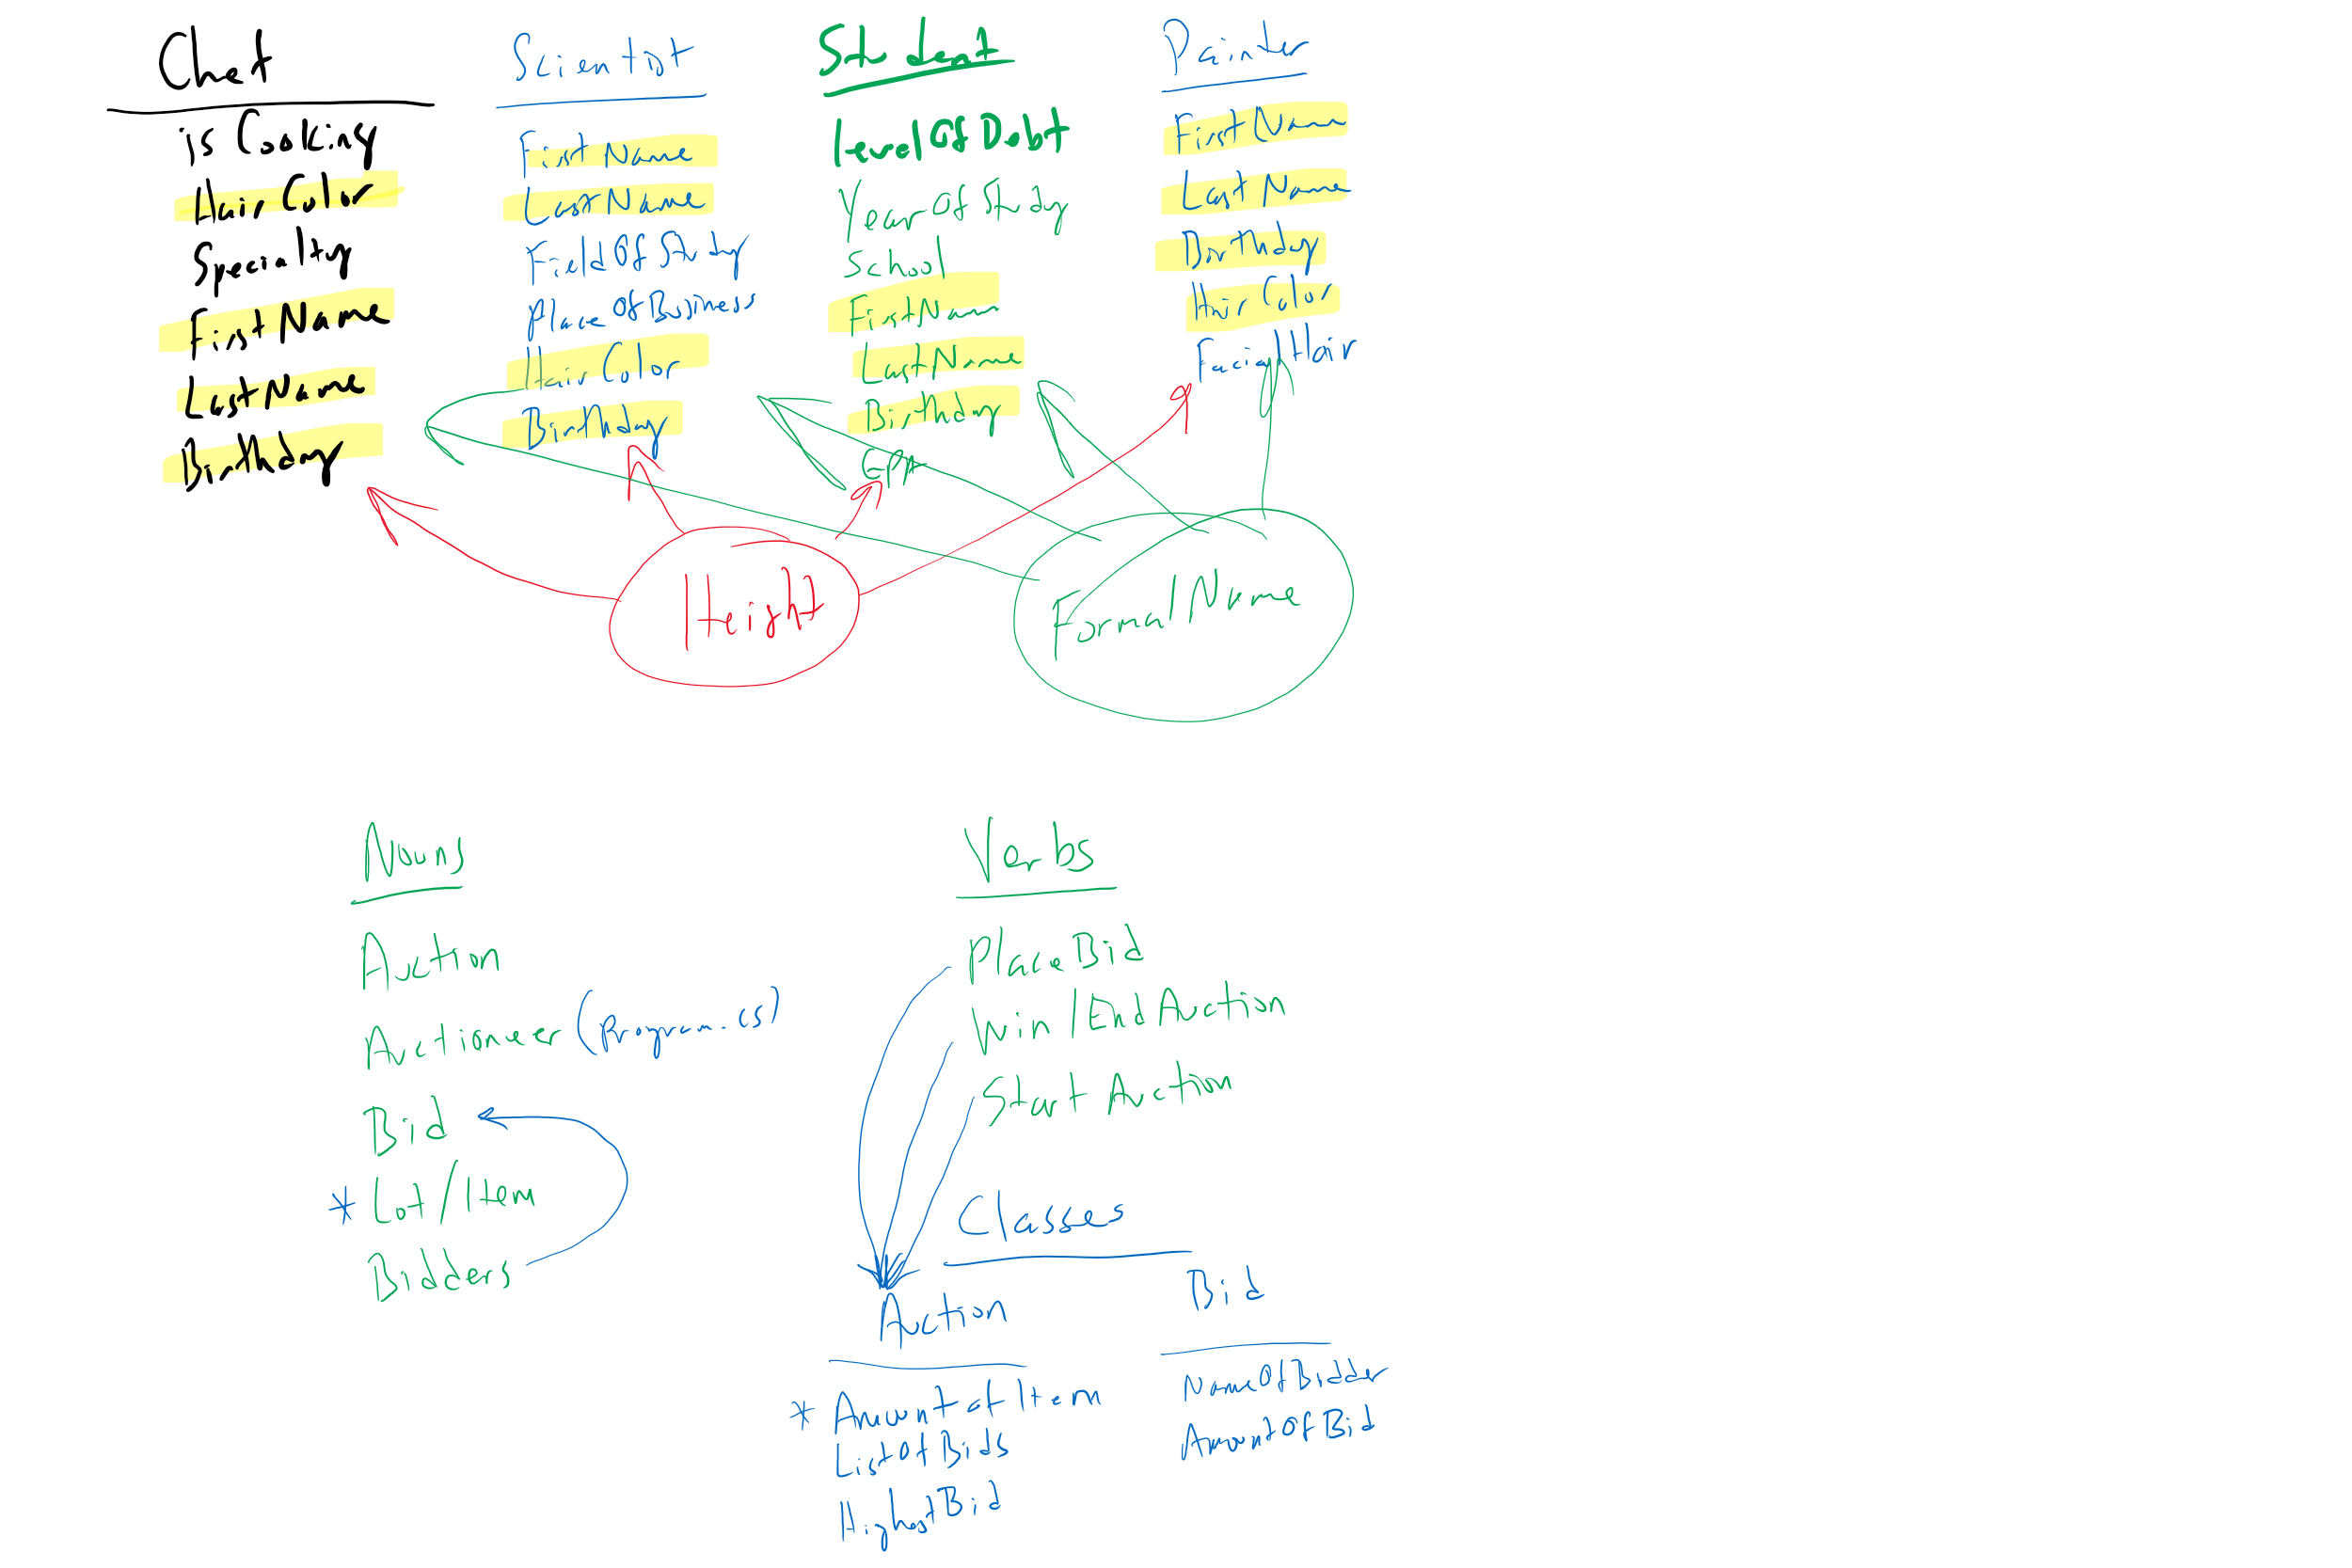 Chef
is Cooking
Hair Color
Specialty
First Name
Last Name
Birthday
Scientist
First Name
Last Name
Field Of Study
Place Of Business
Hair Color
Birthday
Student
Level Of Debt
Year Of Study
School
First Name
Last Name
Birthday
GPA
Painter
First Name
Last Name
Birthday
Hair Color
Facial Hair
Height
Formal Name
Nouns
Auction
Auctioneer (Program.cs)
Bid
* Lot/Item
Bidders
Verbs
Place Bid
Win/End Auction
Start Auction
Classes
Auction
* Amount of Item
List Of Bids
Highest Bid
Bid
Name Of Bidder
Amount Of Bid